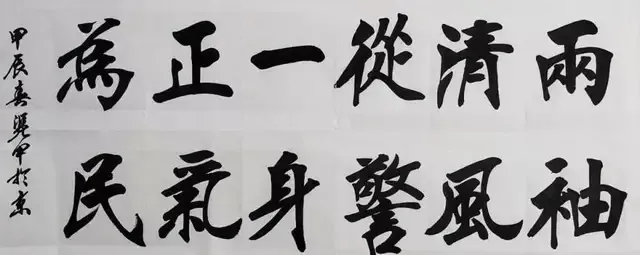 兩袖
清風
從警
一身
正氣
為民
甲辰春
於京